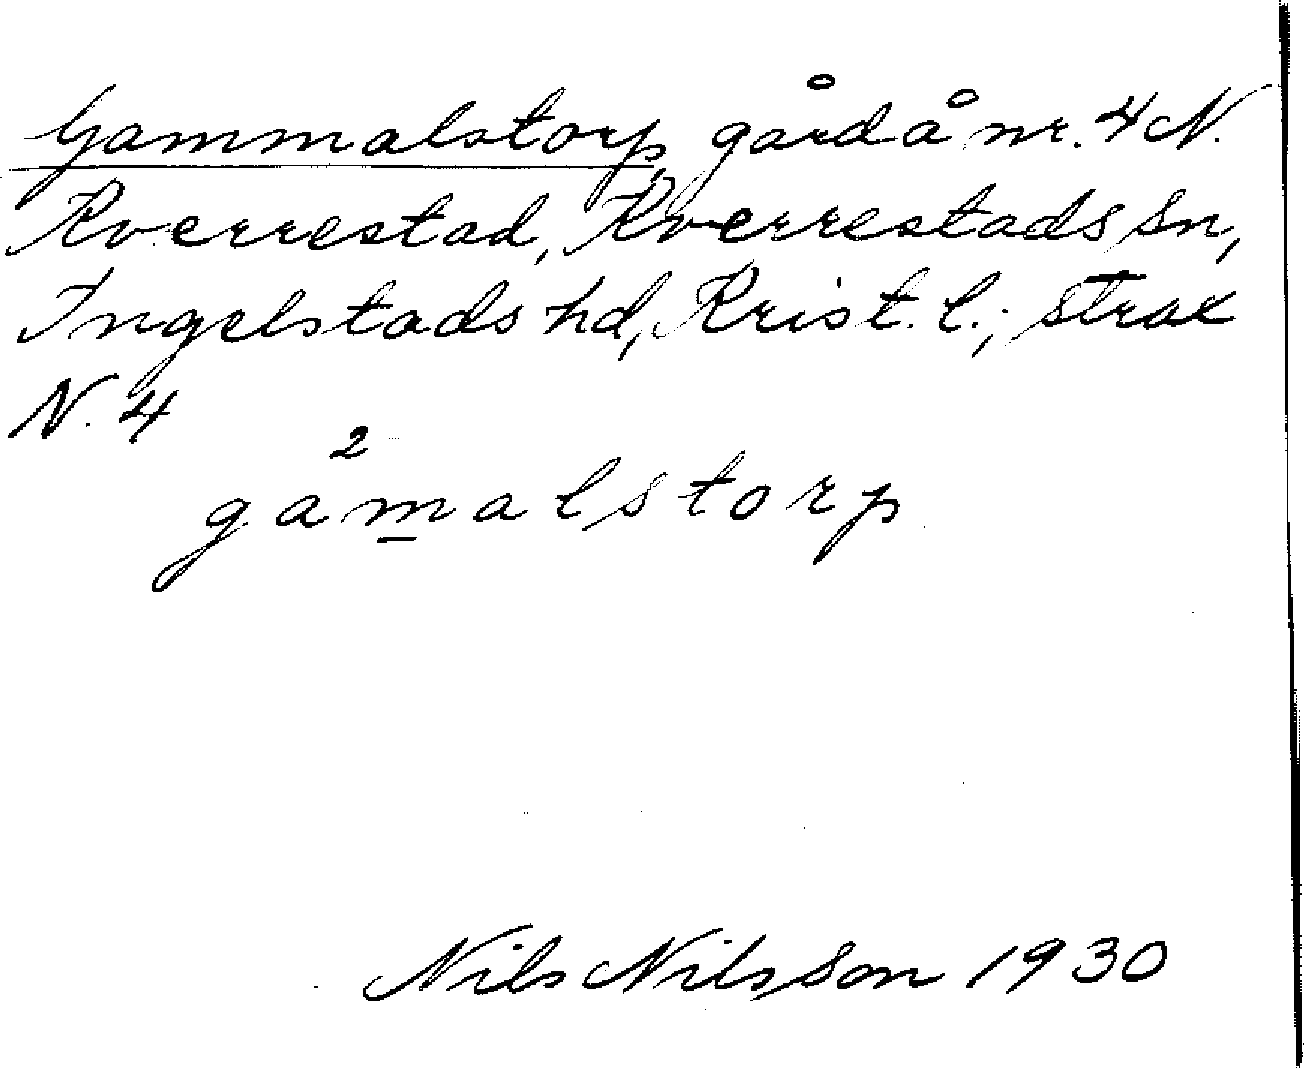 Gammalstorp, gård å nr. 4 N.
Kverrestad, Kverrestads sn,
Ingelstads hd, Krist. l.; strax
N. 4
2
gamalstorp
Nils Nilsson 1930